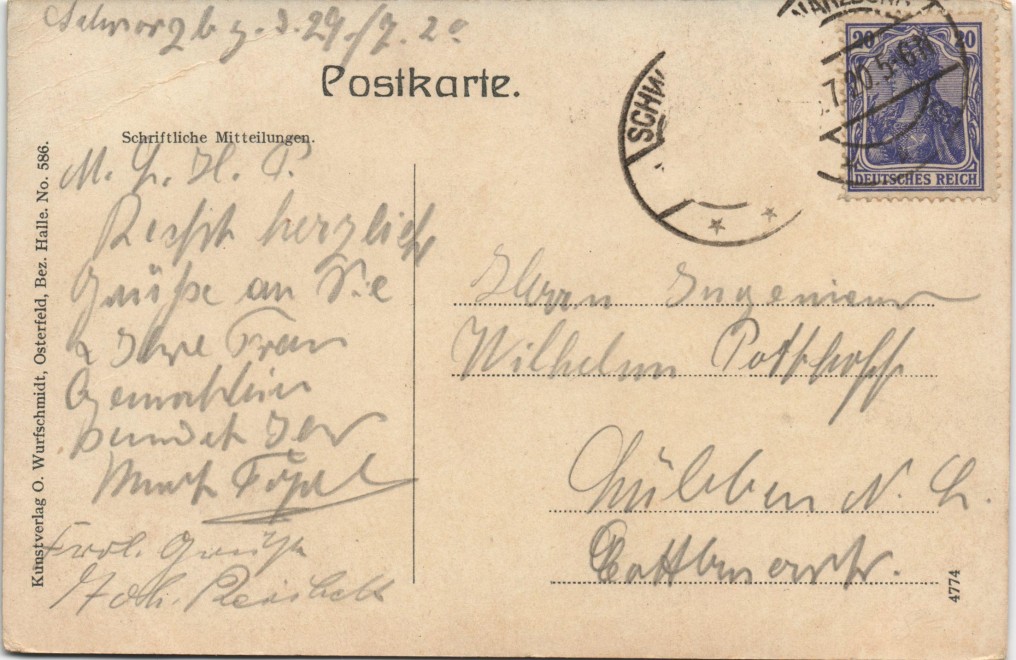 Schwarzbg. d. 29./7. 20
Postkarte.
Schriftliche Mitteilungen.
M. L. H. P.
Recht herzliche
Grüße an Sie
& Ihre Frau
Gemahlin
sendet Ihr
Frdl. Grüße
Joh.
Herrn Ingenieur
Wilhelm Potthoff
Gülben N. L.
Cottbuserstr.
Kunstverlag O. Wurfschmidt, Osterfeld, Bez. Halle. No. 586.
4774
20 20
DEUTSCHES REICH
SCHW
WARZBUR
.7.20.5-6N